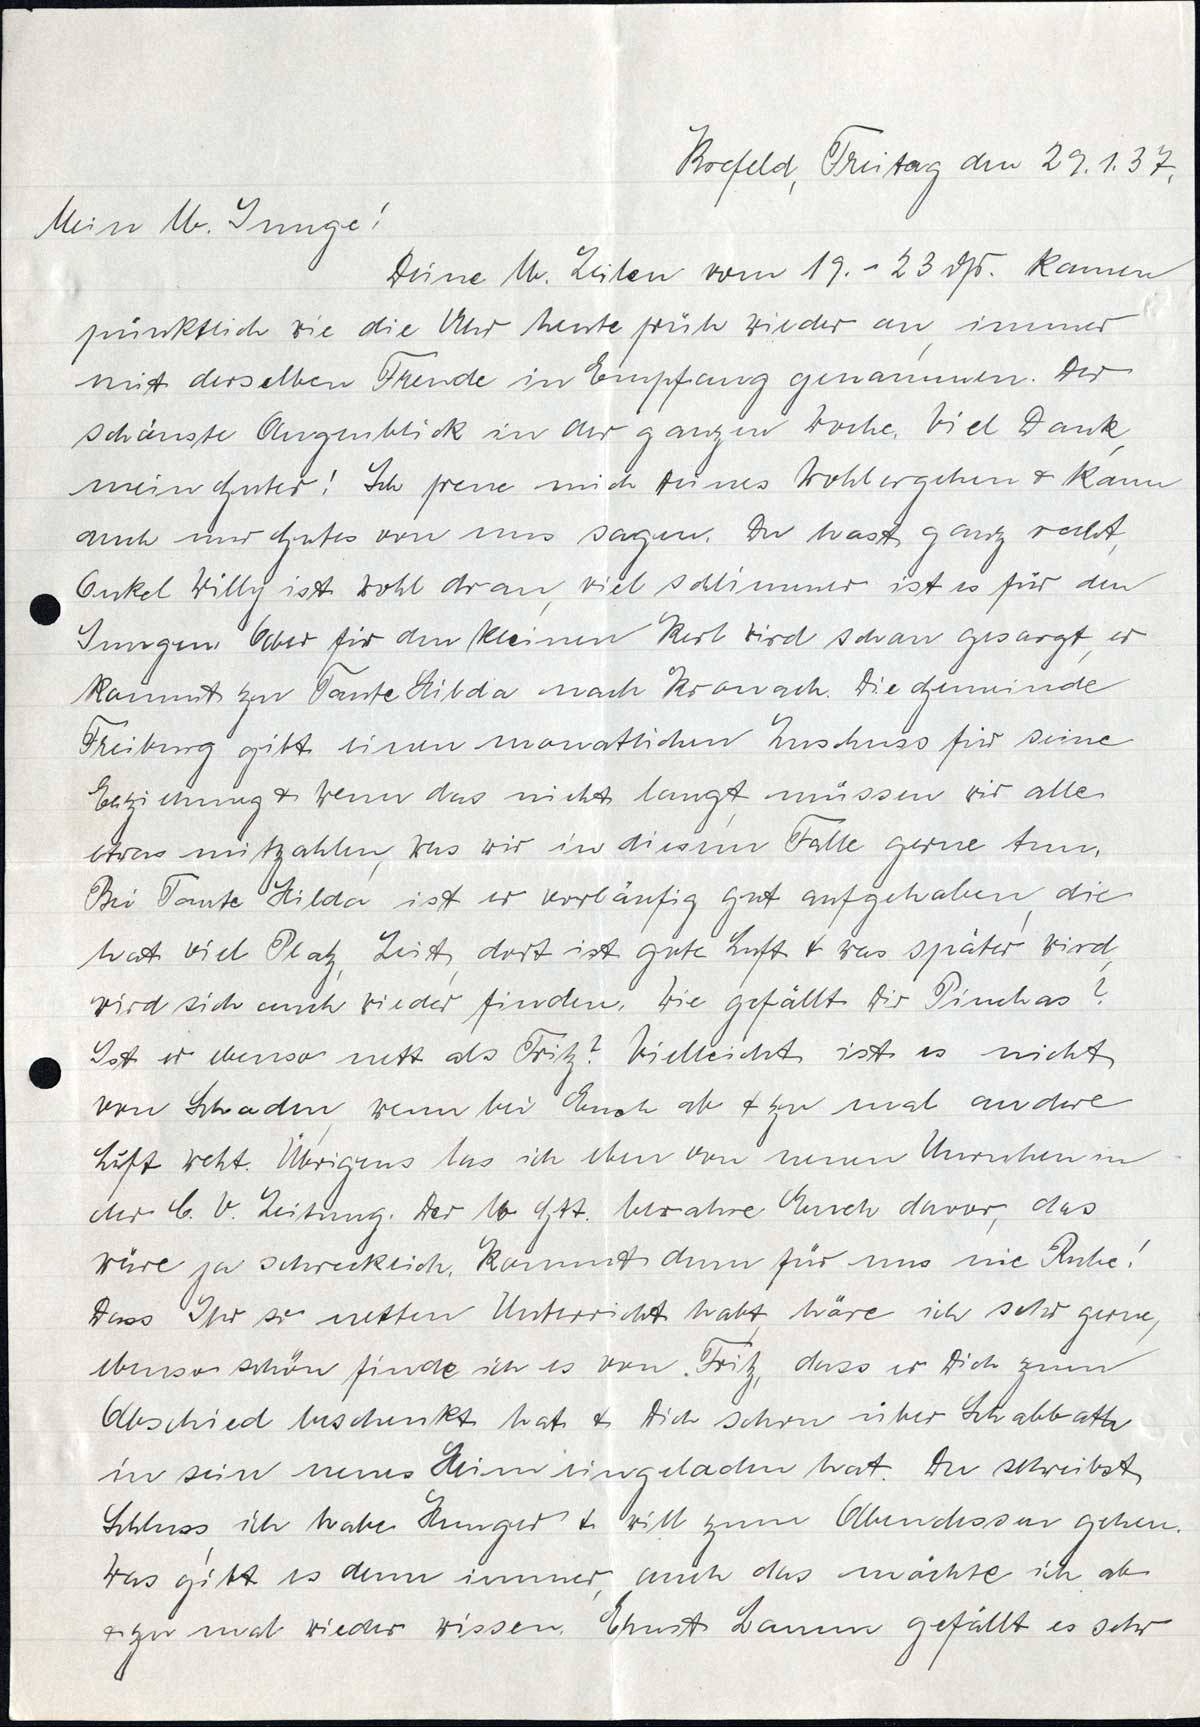 Krefeld, Freitag den 29.1.37.
Mein lb. Junge!
Deine lb. Zeilen vom 19. - 23 ds. kamen
pünktlich wie die Uhr heute früh wieder an, immer
mit derselben Freude in Empfang genommen. Der
schönste Augenblick in der ganzen Woche. Viel Dank,
mein Guter! Ich freue mich Deines Wohlergehen & kann
auch nur Gutes von uns sagen. Du hast ganz recht,
Onkel Willy ist wohl dran, viel schlimmer ist es für den
Jungen. Aber für den kleinen Kerl wird schon gesorgt, er
kommt zu Tante Hilda nach Kronach. Die Gemeinde
Freiburg gibt einen monatlichen Zuschuss für seine
Erziehung & wenn das nicht langt, müssen wir alle
etwas mitzahlen, was wir in diesem Falle gerne tun.
Bei Tante Hilda ist er vorläufig gut aufgehoben, die
hat viel Platz, Zeit, dort ist gute Luft & was später wird,
wird sich auch wieder finden. Wie gefällt Dir Pinchas?
Ist er ebenso nett als Fritz? Vielleicht ist es nicht
von Schaden, wenn bei Euch ab & zu mal andere
Luft weht. Übrigens las ich eben von neuen Unruhen in
der C. V. Zeitung. Der lb Gtt. bewahre Euch davor, das
wäre ja schrecklich. Kommt denn für uns nie Ruhe!
Dass Ihr so netten Unterricht habt, höre ich sehr gerne,
ebenso schön finde ich es von Fritz, dass er Dich zum
Abschied beschenkt hat & Dich schon über Schabbath
in sein neues Heim eingeladen hat. Du schreibst,
Schluss, ich habe Hunger & will zum Abendessen gehen.
Was gibt es denn immer, auch das möchte ich ab
& zu mal wieder wissen. Ernst Lamm gefällt es sehr